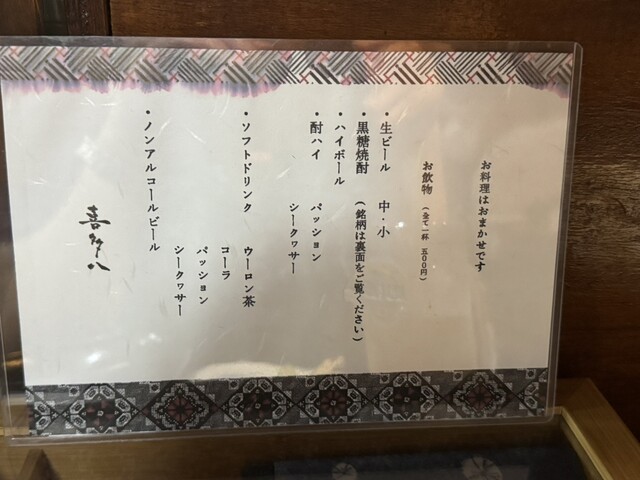 お料理はおまかせです
お飲物 (全て一杯 五〇〇円)
・生ビール 中・小
・黒糖焼酎 (銘柄は裏面をご覧ください)
・ハイボール
・酎ハイ パッション
シークヮサー
・ソフトドリンク ウーロン茶
コーラ
パッション
シークヮサー
・ノンアルコールビール
喜多八